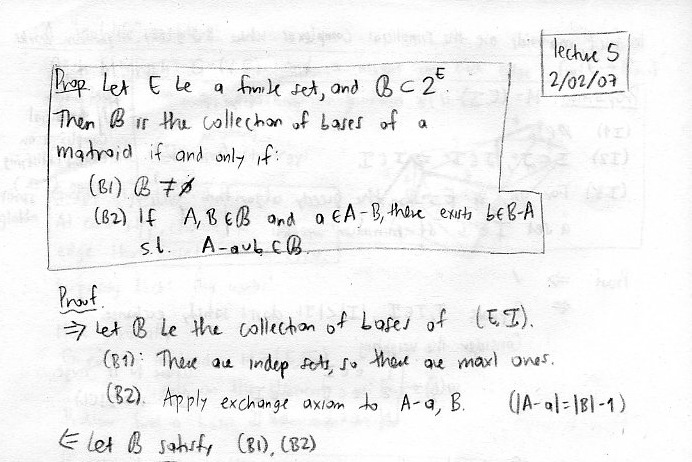 lecture 5
2/02/07
Prop. Let E be a finite set, and ℬ ⊂ 2^E.
Then ℬ is the collection of bases of a
matroid if and only if:
(B1) ℬ ≠ ∅
(B2) If A, B ∈ ℬ and a ∈ A-B, there exists b ∈ B-A
s.t. A-a∪b ∈ ℬ.
Proof.
⇒ Let ℬ be the collection of bases of (E, I).
(B1): There are indep sets, so there are maxl ones.
(B2). Apply exchange axiom to A-a, B. (|A-a|=|B|-1)
⇐ Let ℬ satisfy (B1), (B2)